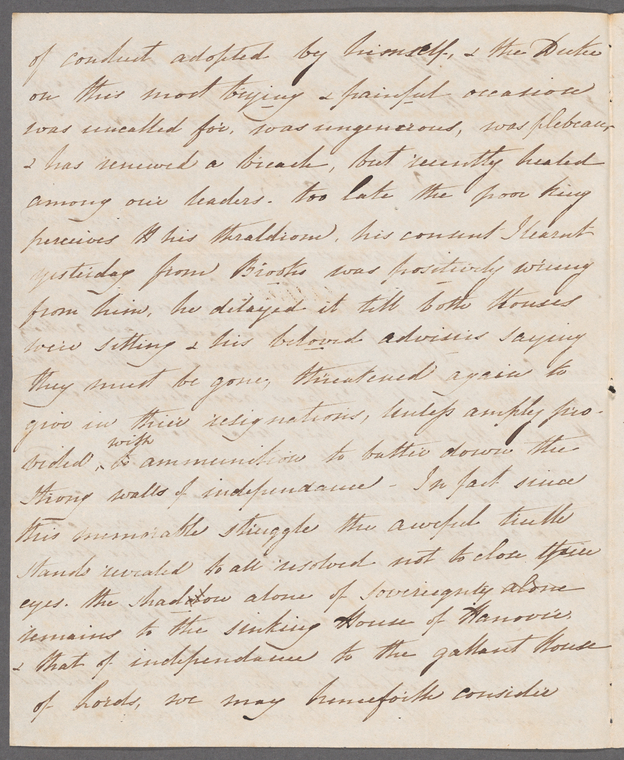 of conduct adopted by himself, & the Duke
on this most trying & painful occasion
was uncalled for, was ungenerous, was plebean,
& has renewed a breach, but recently healed
among our leaders. too late the poor King
perceives his thraldom, his consent I learnt
yesterday from Brooks was positively wrung
from him, he delayed it till both Houses
were sitting & his beloved advisers saying
they must be gone, threatened again to
give in their resignations, Unless amply pro-
vided, with ammunition to batter down the
strong walls of independance - In fact since
this memorable struggle the aweful truth
stands revealed to all resolved not to close their
eyes. the shadow alone of sovereignty alone
remains to the sinking House of Hanover,
& that of independance to the gallant House
of Lords, we may henceforth consider